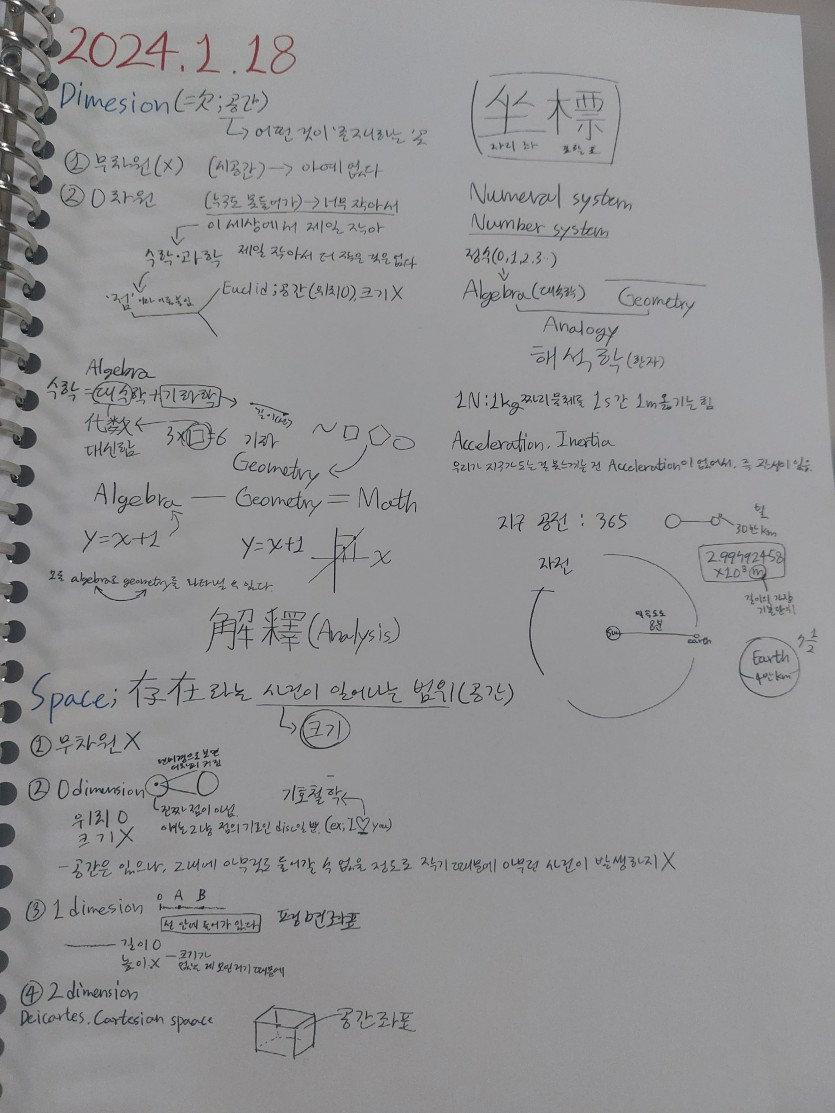 2024.1.18
Dimesion(=次;공간)
어떤 것이 '존재하는' 곳
① 무차원(X) (시공간)→ 아예 없다
② 0차원 (누구도 못들어가)→너무 작아서
이 세상에서 제일 작아
수학·과학 제일 작아서 더 작을 수 없다
'점'
Euclid;공간(위치0),크기X
Algebra
수학=대수학+기하학→ 길이
代数
대신함
3×□=6
기하
Geometry
Algebra — Geometry = Math
y=x+1
y=x+1
x
모든 algebra로 geometry를 나타낼 수 있다.
解釋(Analysis)
坐標
자리 좌 표할 표
Numeral system
Number system
정수(0,1,2,3..)
Algebra(대수학) Geometry
Analogy
해석학(한자)
1N:1kg짜리 물체로 1s간 1m옮기는 힘
Acceleration, Inertia
우리가 지구가 도는걸 못느끼는 건 Acceleration이 없어서, 즉 관성이 있음
지구 공전 : 365
빛
30만km
2.99792458
×10⁸m
길이의 가장
기본단위
자전
빛속도로
8분
sun
earth
Earth
4만km
1/2
Space; 存在라는 사건이 일어나는 범위(공간)
크기
① 무차원 X
② 0dimension
현미경으로 보면
진짜 점이 아님.
위치 0
크기 X
얘는 그냥 점의 기호인 disc일 뿐.
기호철학
(ex;I♡you)
-공간은 있으나, 그 내에 아무것도 들어갈 수 없을 정도로 작기 때문에 아무런 사건이 발생하지X
③ 1dimesion
0 A B
선 안에 들어가 있다
평면좌표
길이 0
높이 X
크기가
없는 게 모인거기 때문에
④ 2dimension
Deicartes. Cartesian spaace
공간좌표